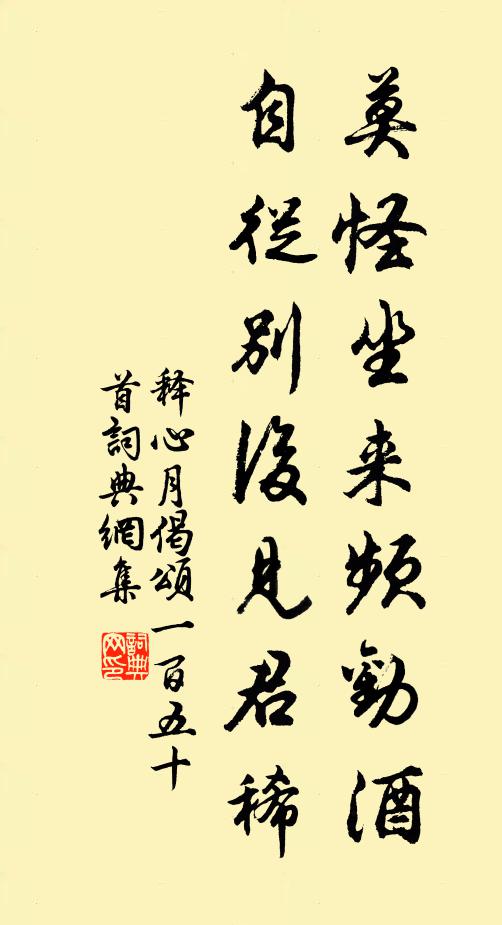 莫怪坐来频勸酒
自從别後見君稀
释心月偈頌一百五十
首詞典網集
詞典
网印